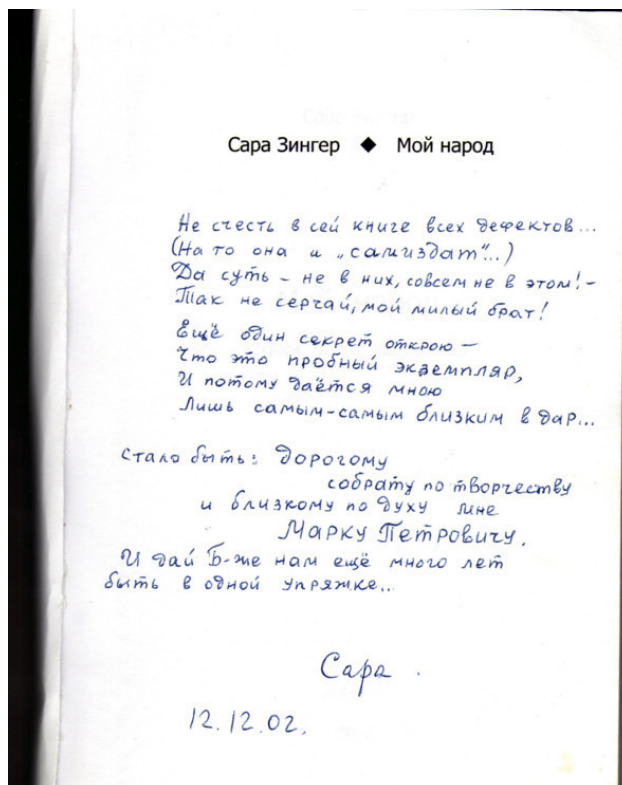 Сара Зингер ◆ Мой народ
Не счесть в сей книге всех дефектов...
(На то она и „самиздат“...)
Да суть – не в них, совсем не в этом! –
Так не серчай, мой милый брат!
Ещё один секрет открою –
Что это пробный экземпляр,
И потому даётся мною
Лишь самым-самым близким в дар...
Стало быть: Дорогому
собрату по творчеству
и близкому по духу мне
Марку Петровичу.
И дай Б-же нам ещё много лет
быть в одной упряжке...
Сара
12.12.02.